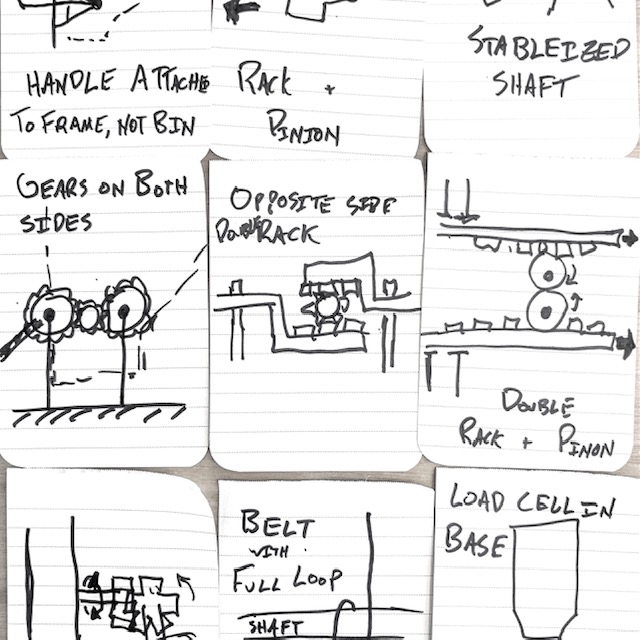 HANDLE ATTACHED
TO FRAME, NOT BIN
RACK +
PINION
STABLEIZED
SHAFT
GEARS ON BOTH
SIDES
OPPOSITE SIDE
DOUBLE RACK
DOUBLE
RACK + PINON
BELT
WITH
FULL LOOP
SHAFT
LOAD CELL IN
BASE